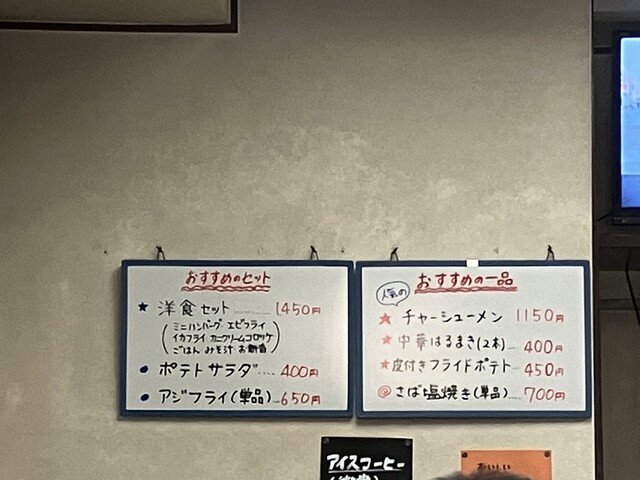 おすすめのセット
★ 洋食セット.......... 1450円
(ミニハンバーグ エビフライ
イカフライ カニクリームコロッケ
ごはん みそ汁 お新香)
● ポテトサラダ.... 400円
● アジフライ(単品)-650円
人気の おすすめの一品
★ チャーシューメン 1150円
★ 中華はるまき(2本)... 400円
★ 皮付きフライドポテト... 450円
◎ さば塩焼き(単品)... 700円
アイスコーヒー
おいしい